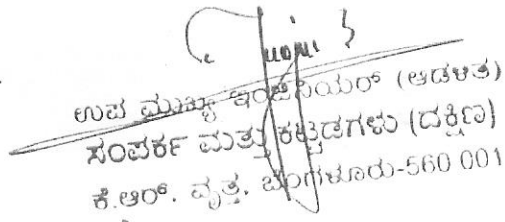 ಉಪ ಮುಖ್ಯ ಇಂಜಿನಿಯರ್ (ಆಡಳಿತ)
ಸಂಪರ್ಕ ಮತ್ತು ಕಟ್ಟಡಗಳು (ದಕ್ಷಿಣ)
ಕೆ.ಆರ್. ವೃತ್ತ, ಬೆಂಗಳೂರು-560 001